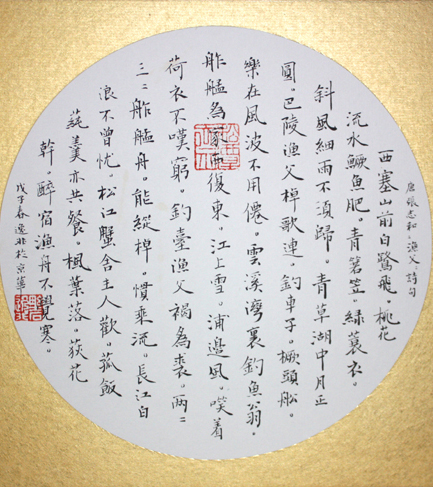 唐張志和·漁父詩句
西塞山前白鷺飛。桃花
流水鱖魚肥。青箬笠。綠蓑衣。
斜風細雨不須歸。青草湖中月正
圓。巴陵漁父棹歌連。釣車子。橛頭船。
樂在風波不用僊。雲溪灣裏釣魚翁。
舴艋為家西復東。江上雪。浦邊風。咲着
荷衣不嘆窮。釣臺漁父褐為裘。兩〻
三〻舴艋舟。能縱棹。慣乘流。長江白
浪不曾憂。松江蟹舍主人歡。菰飯
蓴羹亦共餐。楓葉落。荻花
幹。醉宿漁舟不覺寒。
戊子春逸非於京華